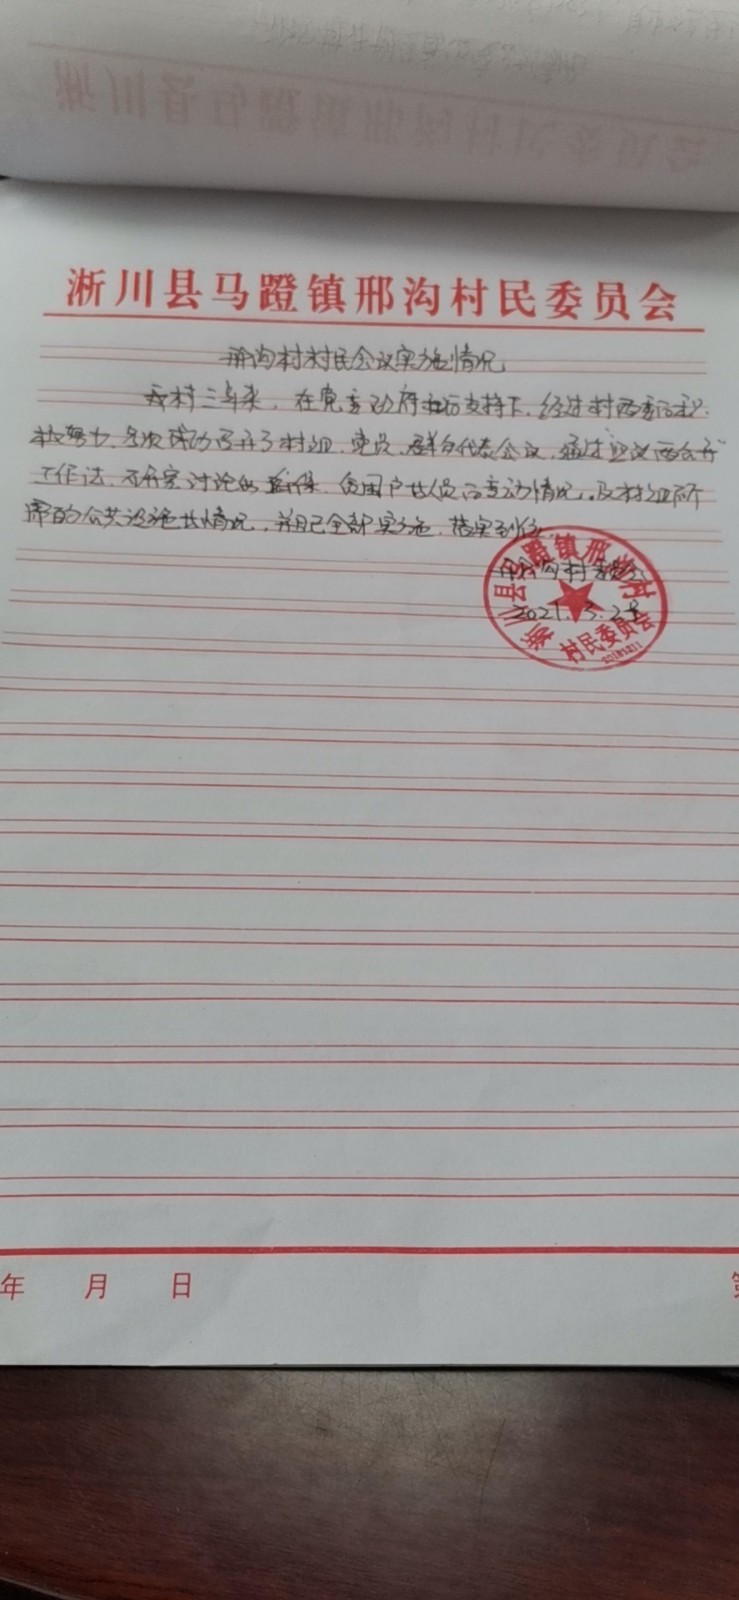 淅川县马蹬镇邢沟村民委员会
邢沟村村民会议实施情况
我村三年来，在党委政府的支持下，经过村两委的积
极努力，多次成功召开了村组、党员、群众代表会议，通过四议两公开
工作法，不断完讨论的低保、贫困户共人员的变动情况，及村组所
需的公共设施共情况，并且已全部实施，落实到位。
邢沟村委会
2021.3.28
淅川县马蹬镇邢沟村
村民委员会
年 月 日